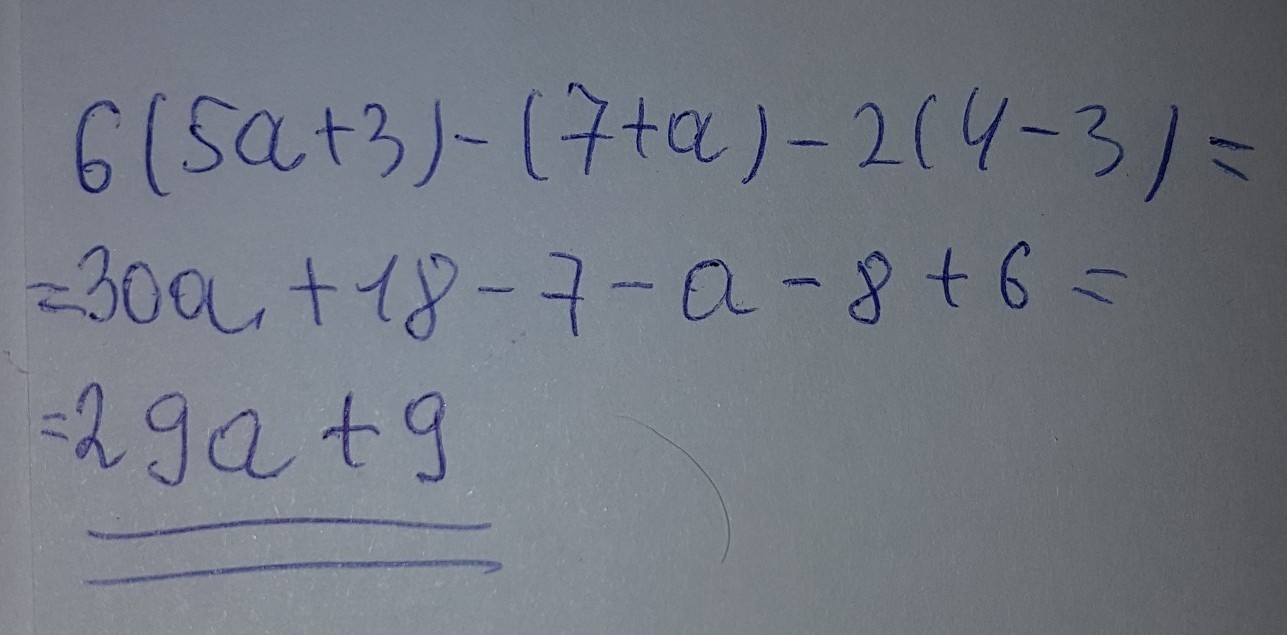 6(5a+3)-(7+a)-2(4-3)=
=30a+18-7-a-8+6=
=29a+9